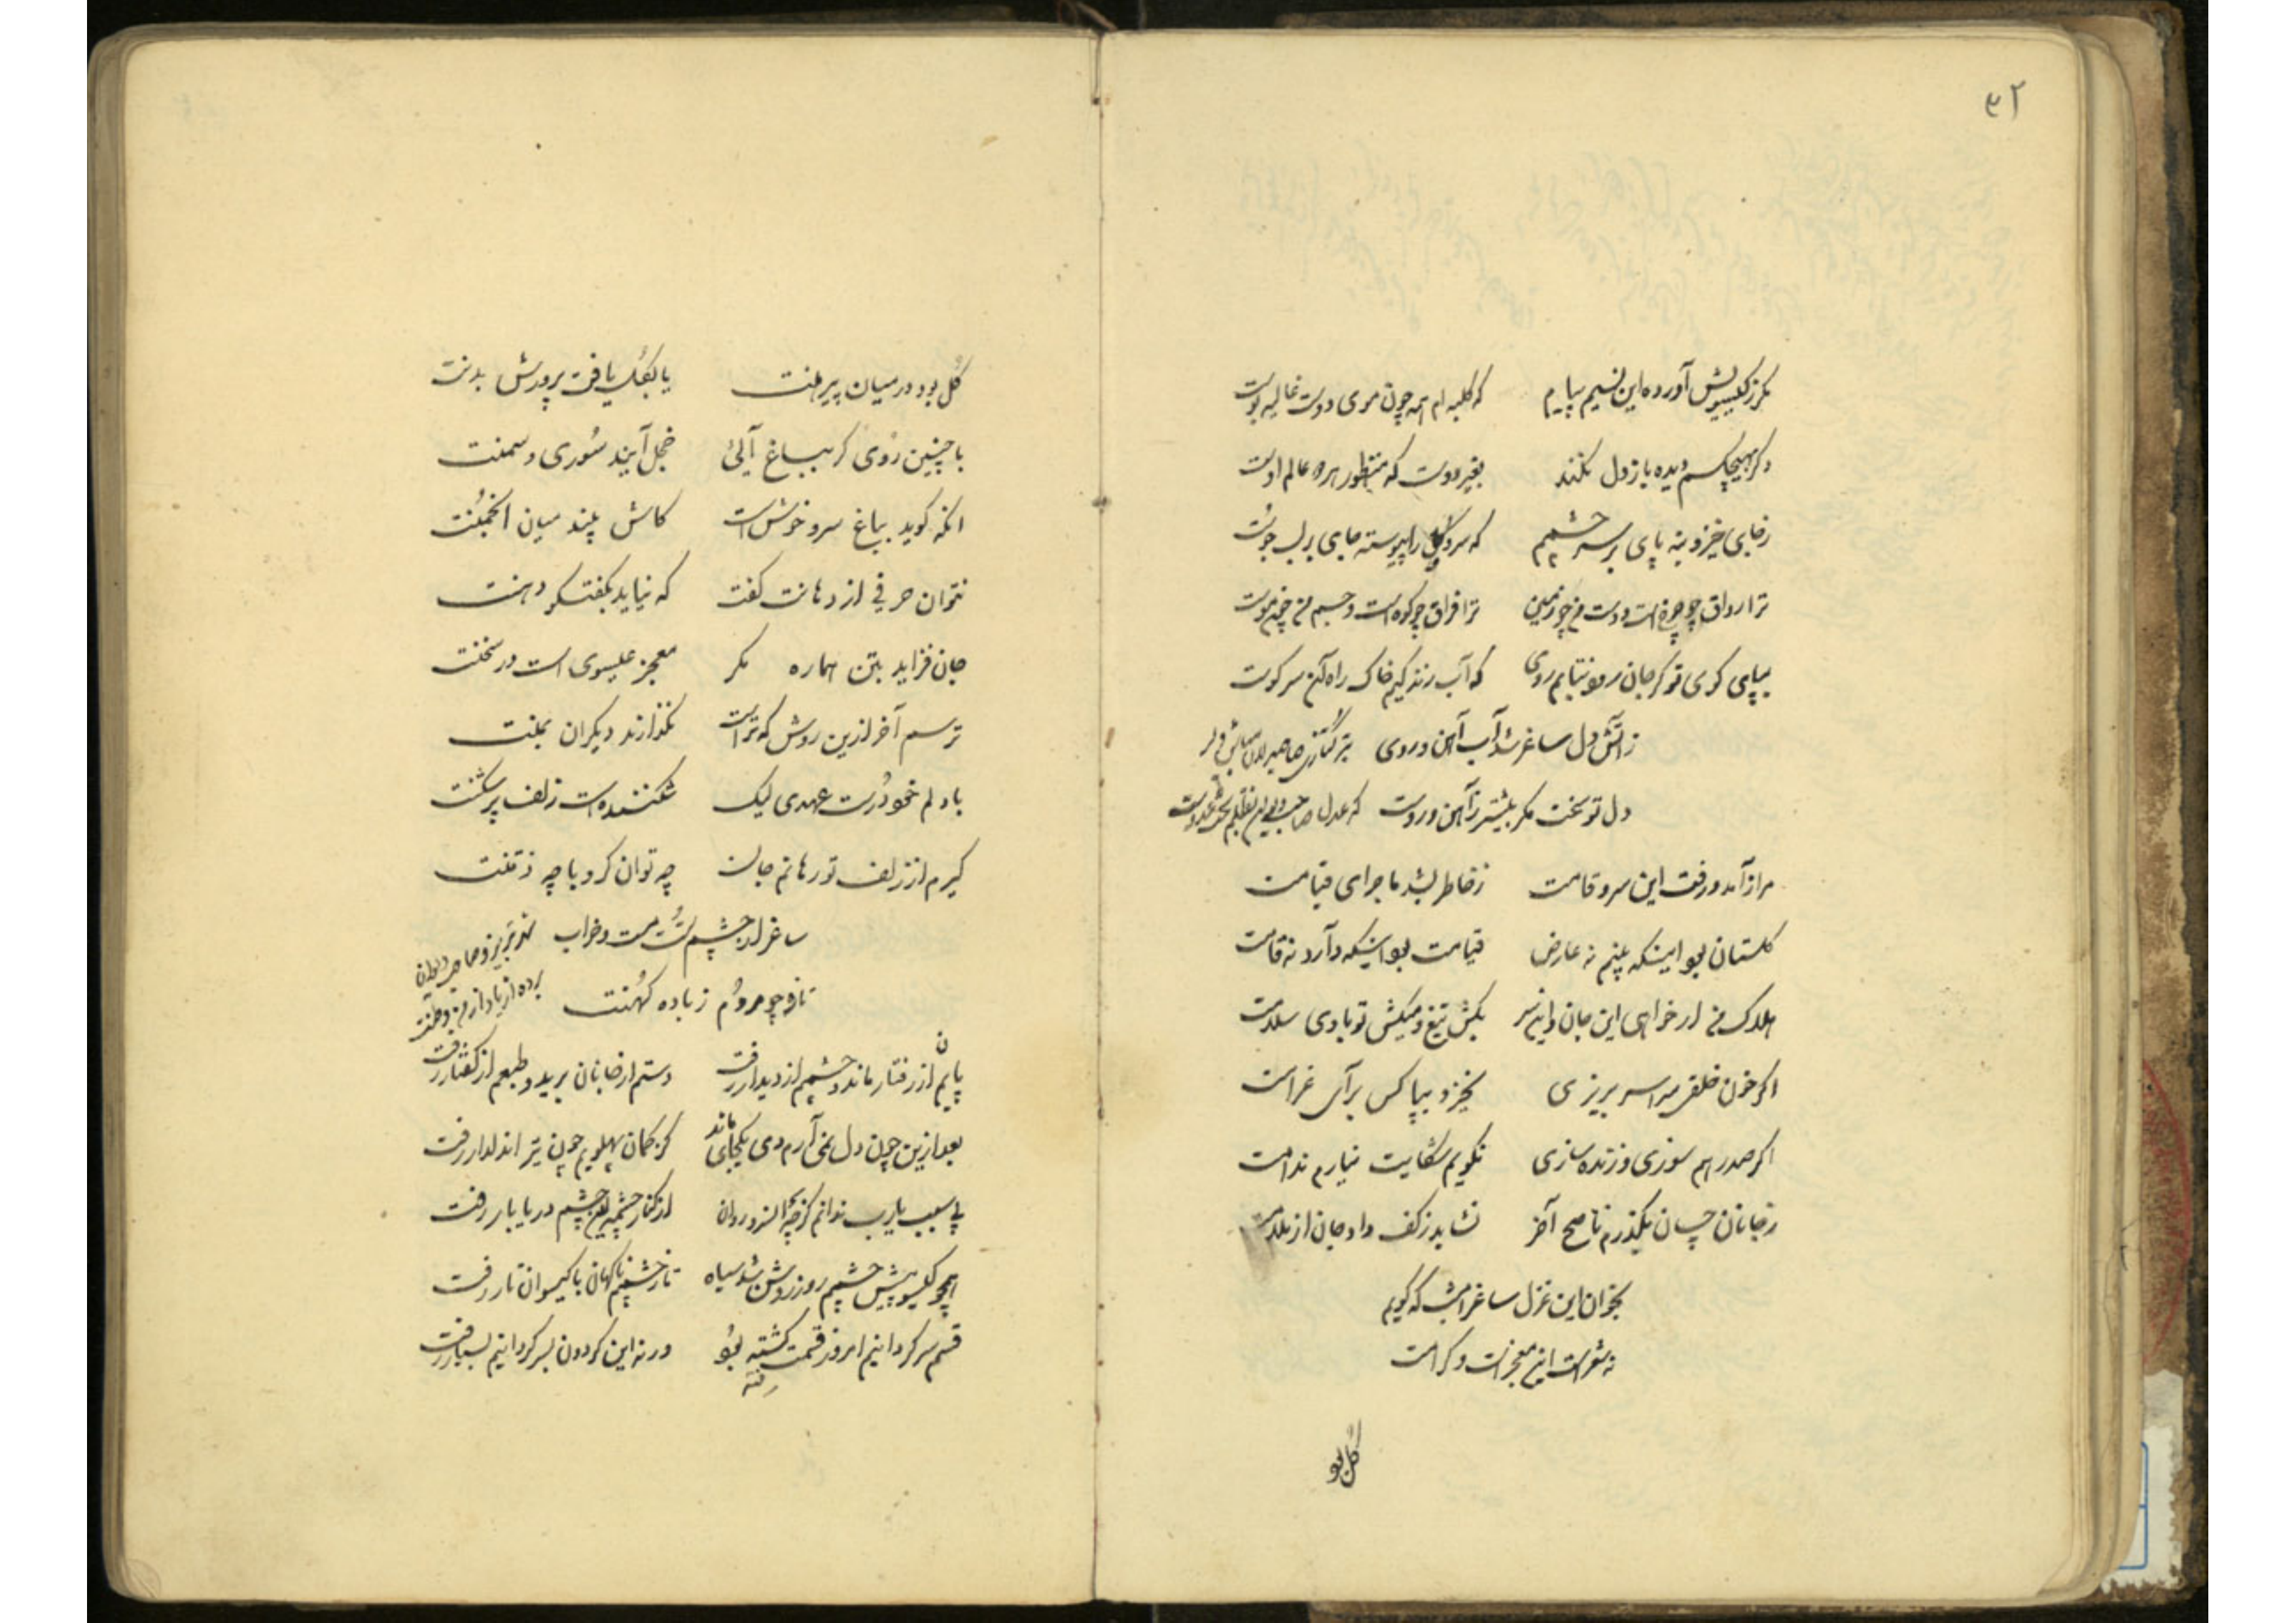 ۴۲
مکر ز گیسویش آورده این نسیم پیام    که کلبه ام همه چون موی دوست غالیه بوست
دکر بهیچکسم دیده باز دل نکند    بغیر دوست که منظور هر دو عالم اوست
ز جای خیز و بنه پای بر سر چشمم    که سرو را پیوسته جای بر لب جوست
ترا فراق چو کوه است و جسم من چون موست
بپای کوی تو کر جان رود نتابم روی    که آب زندگیم خاک راه آن سر کوست
ز آتش دل ساغر شد آب آهن و روی
دل تو سخت مکر بیشتر ز آهن و روست    که عدل صاحب
مرا ز آمد و رفت این سرو قامت    ز خاطر بشد ماجرای قیامت
کلستان بود اینکه بینم نه عارض    قیامت بود اینکه دارد نه قامت
هلاک من ار خواهی این جان و این سر    بکش تیغ و میکش تو بادی سلامت
اکر خون خلقی سراسر بریزی    نخیزد بپا کس برای غرامت
اکر صد رهم سوزی و زنده سازی    نکویم شکایت نیارم ندامت
ز جانان چسان بکذرم ناصح آخر    نشاید ز کف داد جان از ملامت
بخوان این غزل ساغر امشب که کویم
نه شعر است این معجز است و کرامت
کل بود
کل بود در میان پیرهنت    یا بکل یافت پرورش بدنت
با چنین روی کر بباغ آئی    خجل آیند سوری و سمنت
آنکه کوید بباغ سرو خوش است    کاش بیند میان انجمنت
نتوان حرفی از دهانت کفت    که نیاید بکفتکو دهنت
جان فزاید بتن هماره مکر    معجز عیسوی است در سخنت
ترسم آخر ازین روش که تراست    نکذارند دیکران بمنت
با دلم خود درست عهدی لیک    شکننده است زلف پر شکنت
کیرم از زلف تو رهانم جان    چه توان کرد با چه ذقنت
ساغر از چشم تست مست و خراب
نز چو مردم ز باده کهنت
پایم از رفتار ماند و چشمم از دیدار رفت    دستم از جانان برید و طبعم از کفتار رفت
بعد ازین چون دل نمی آرم دمی یکجای ماند    کز کمان پهلویم چون تیر آن دلدار رفت
بی سبب یارب ندانم کز چه آن سرو روان    از کنار چشمه این چشم دریا بار رفت
همچو کیسو پیش چشمم روز روشن شد سیاه    تا ز چشمم ناکهان با کیسوان تار رفت
قسم سرکردانیم امروز قسمت کشته بود    ورنه این کردون بسرکردانیم بسیار رفت
رفته